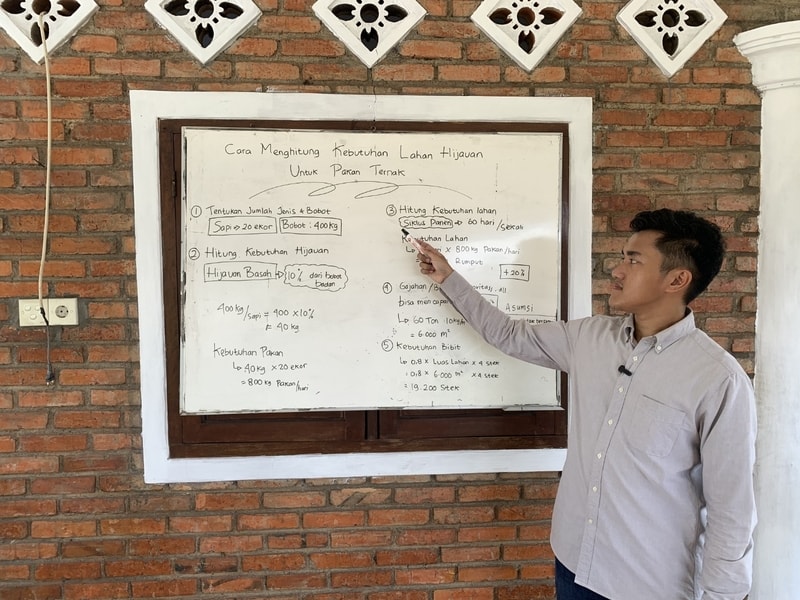 Cara Menghitung Kebutuhan Lahan Hijauan
Untuk Pakan Ternak
1 Tentukan Jumlah Jenis & Bobot
Sapi → 20 ekor Bobot : 400 kg
2 Hitung Kebutuhan Hijauan
Hijauan Basah → 10% dari bobot
badan
400 kg/sapi = 400 x 10%
= 40 kg
Kebutuhan Pakan
↳ 40 kg x 20 ekor
= 800 kg Pakan/hari
3 Hitung Kebutuhan lahan
Siklus Panen → 60 hari /sekali
Kebutuhan Lahan
x 800 kg Pakan/hari
Rumput
+20%
4 Gajahan
bisa mencapai
Asumsi
↳ 60 Ton : 10 kg/
= 6.000 m²
5 Kebutuhan Bibit
↳ 0.8 x Luas Lahan x 4 stek
= 0.8 x 6.000 m² x 4 stek
= 19.200 Stek